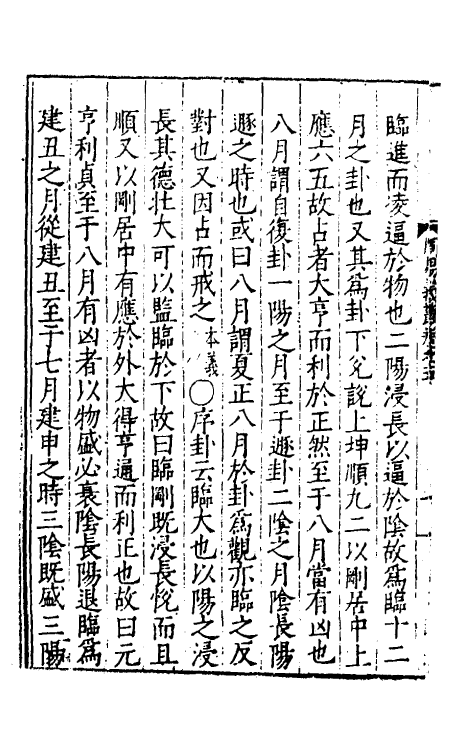 臨進而凌逼於物也二陽浸長以逼於陰故爲臨十二
月之卦也又其爲卦下兌說上坤順九二以剛居中上
應六五故占者大亨而利於正然至于八月當有凶也
八月謂自復卦一陽之月至于遯卦二陰之月陰長陽
遯之時也或曰八月謂夏正八月於卦爲觀亦臨之反
對也又因占而戒之本義○序卦云臨大也以陽之浸
長其德壯大可以監臨於下故曰臨剛旣浸長悅而且
順又以剛居中有應於外大得亨通而利正也故曰元
亨利貞至于八月有凶者以物盛必衰陰長陽退臨爲
建丑之月從建丑至于七月建申之時三陰旣盛三陽